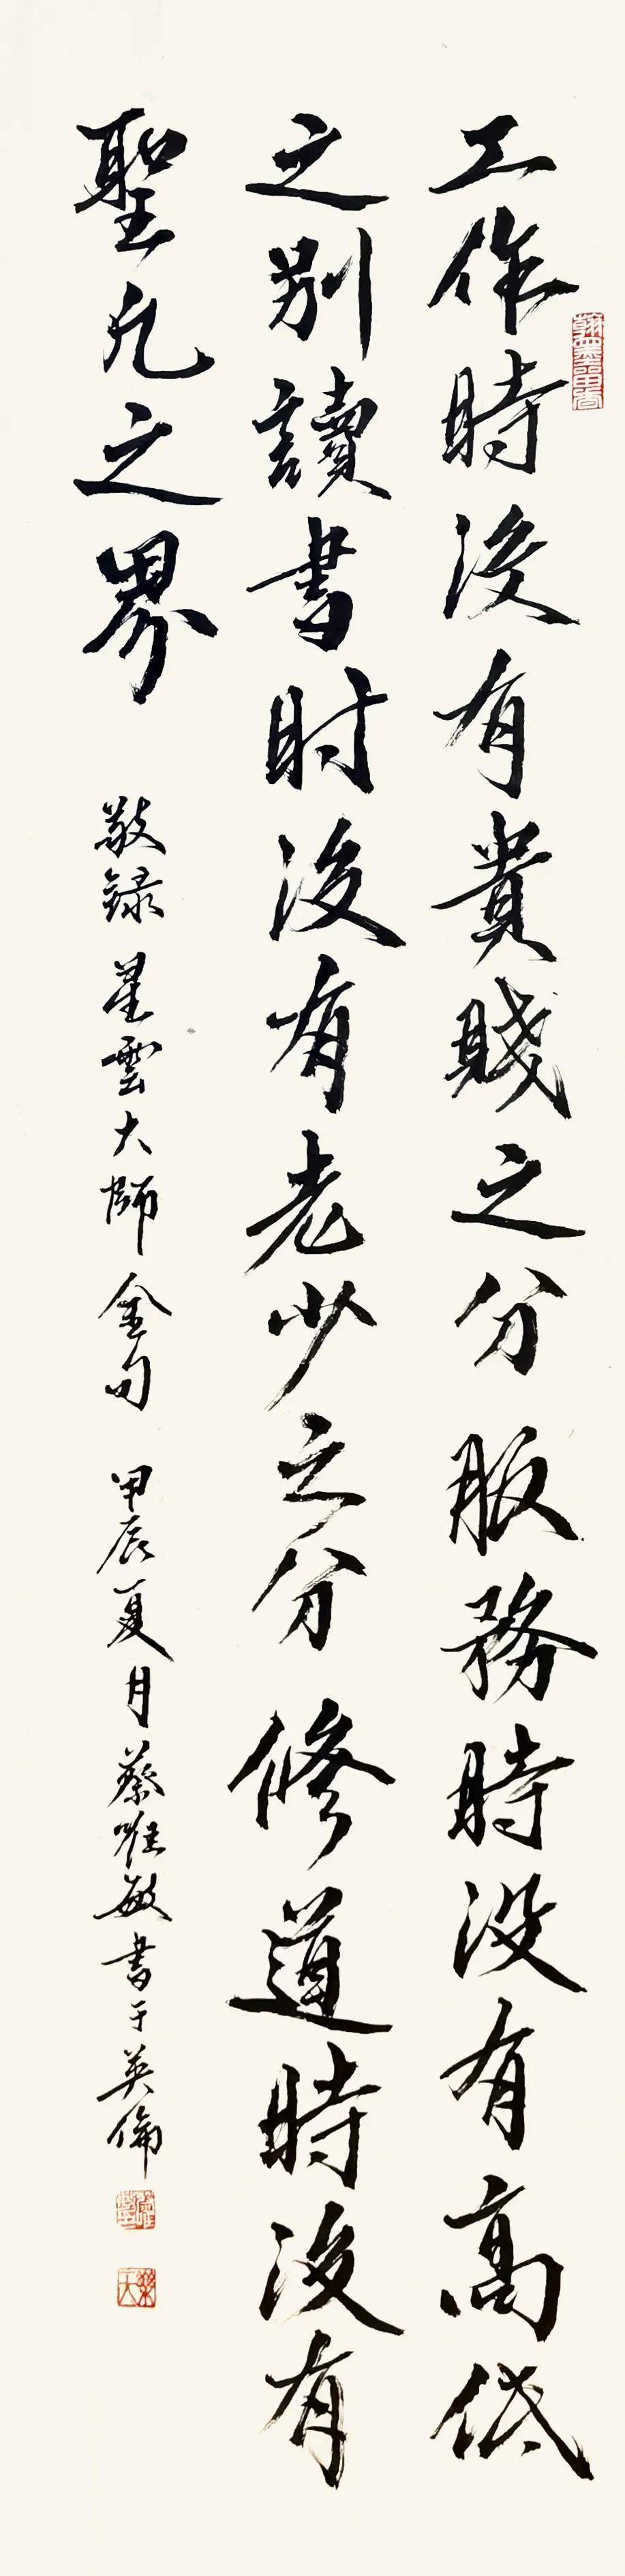 工作時没有貴賤之分服務時没有高低
之别讀書时没有老少之分修道時没有
聖凡之界
敬録星雲大師金句甲辰夏月蔡唯敏書于英倫
翰墨留香